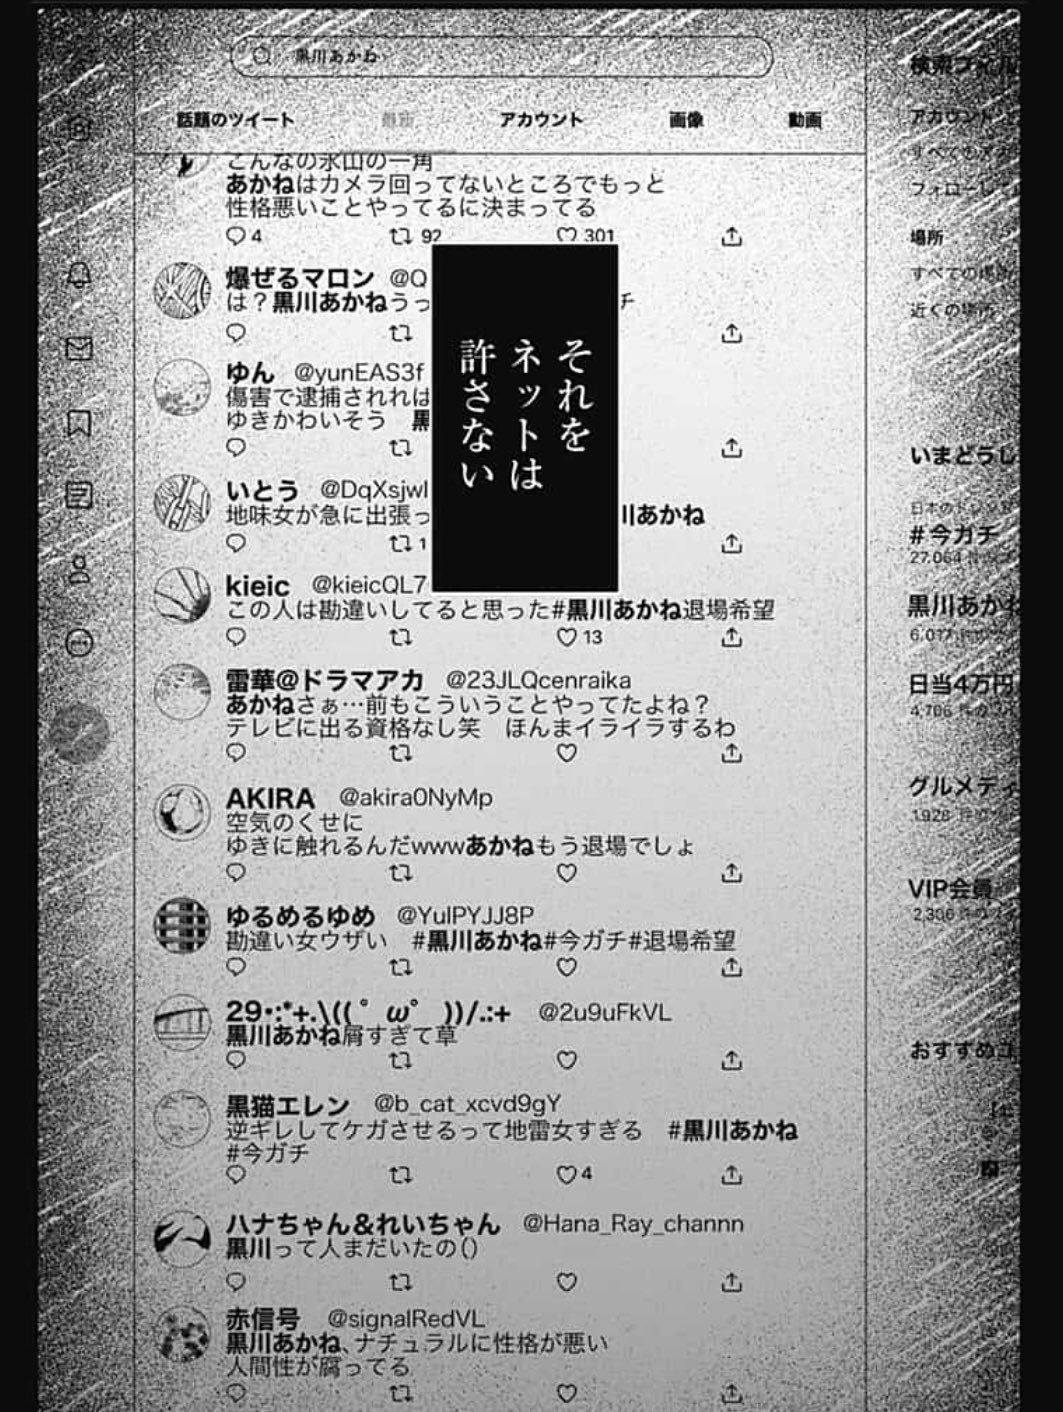 黒川あかね
話題のツイート 最新 アカウント 画像 動画
こんなの氷山の一角
あかねはカメラ回ってないところでもっと
性格悪いことやってるに決まってる
4 92 301
爆ぜるマロン @Q
は？黒川あかねうっ
チ
ゆん @yunEAS3f
傷害で逮捕されれは
ゆきかわいそう 黒
いとう @DqXsjwl
地味女が急に出張っ
川あかね
1
それを
ネットは
許さない
kieic @kieicQL7
この人は勘違いしてると思った#黒川あかね退場希望
13
雷華@ドラマアカ @23JLQcenraika
あかねさぁ…前もこういうことやってたよね？
テレビに出る資格なし笑 ほんまイライラするわ
AKIRA @akira0NyMp
空気のくせに
ゆきに触れるんだwwwあかねもう退場でしょ
ゆるめるゆめ @YulPYJJ8P
勘違い女ウザい #黒川あかね#今ガチ#退場希望
29･:*+.\(( ゜ω゜ ))/.:+ @2u9uFkVL
黒川あかね屑すぎて草
黒猫エレン @b_cat_xcvd9gY
逆ギレしてケガさせるって地雷女すぎる #黒川あかね
#今ガチ
4
ハナちゃん＆れいちゃん @Hana_Ray_channn
黒川って人まだいたの()
赤信号 @signalRedVL
黒川あかね、ナチュラルに性格が悪い
人間性が腐ってる
検索フィル
アカウント
すべての
フォローし
場所
すべての場所
近くの場所
いまどうし
日本のトレンド
#今ガチ
27,064 件の
黒川あかね
6,017 件の
日当4万円
4,706 件の
グルメティ
1,928 件の
VIP会員
2,306 件の
おすすめユ